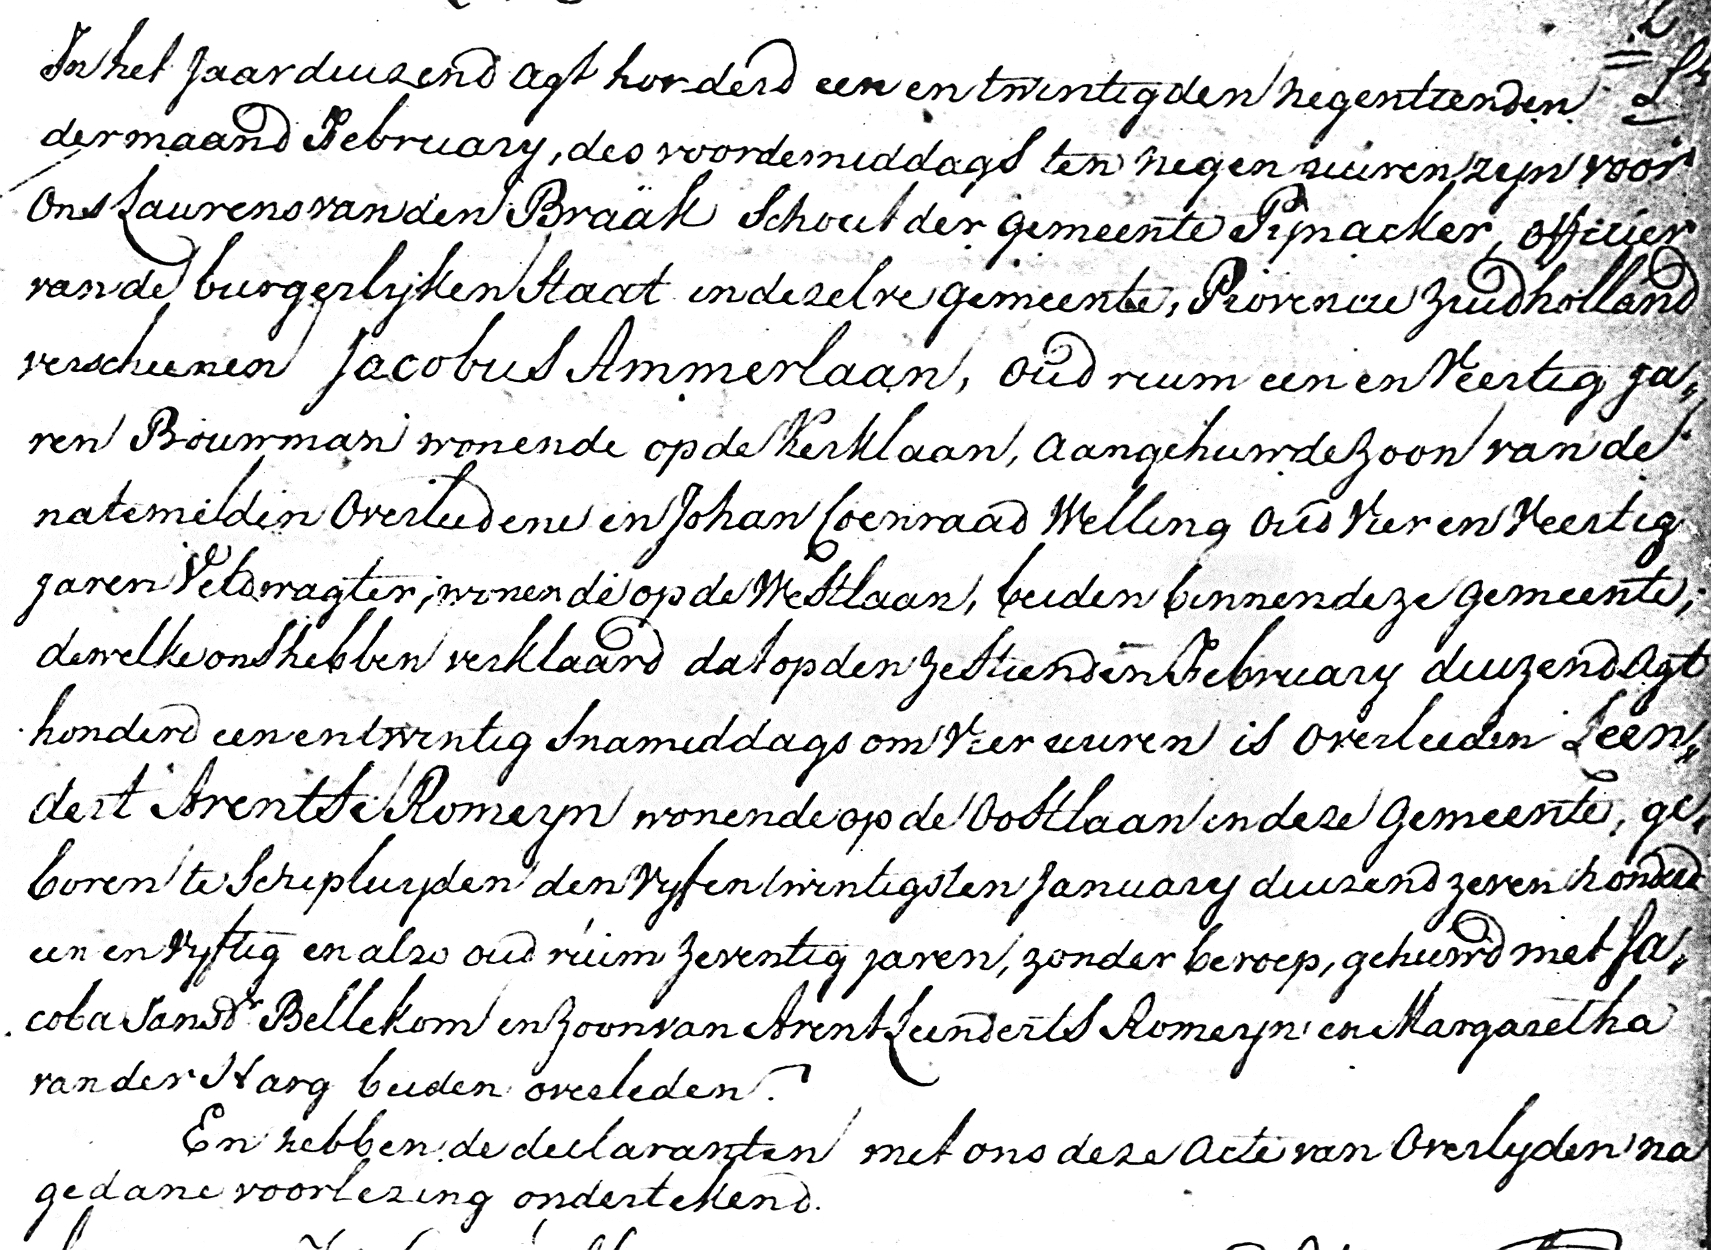 In het Jaar duuzend agt honderd een en twintig den negentienden
der maand February, des voordemiddags ten negen uuren zyn voor
Ons Laurens van den Braäk Schout der gemeente Pijnacker, officier
van de burgerlyken Staat in dezelve gemeente, Provencie Zuidholland
verscheenen Jacobus Ammerlaan, oud ruim een en Veertig ja„
ren Bouwman wonende op de Kerklaan, aangehuwde zoon van de
natemelden Overleedene en Johan Coenraad Welling oud Vier en Veertig
jaren Veldwagter, wonende op de Westlaan, beiden binnen deze gemeente;
dewelke ons hebben verklaard dat op den zestienden February duuzend agt
honderd een en twintig Snamiddags om Vier uuren is overleeden Leen„
dert Arentse Romeyn wonende op de Oostlaan in deze Gemeente, ge„
boren te Schipluyden den Vyf en twintigsten January duuzend zeven honderd
een en Vyftig en alzo oud ruim zeventig jaren, zonder beroep, gehuwd met Ja„
coba Jansdr Bellekom en zoon van Arent Leenderts Romeyn en Margaretha
van der Harg beiden overleden.
En hebben de declaranten met ons deze Acte van Overlyden na
gedane voorlezing ondertekend.